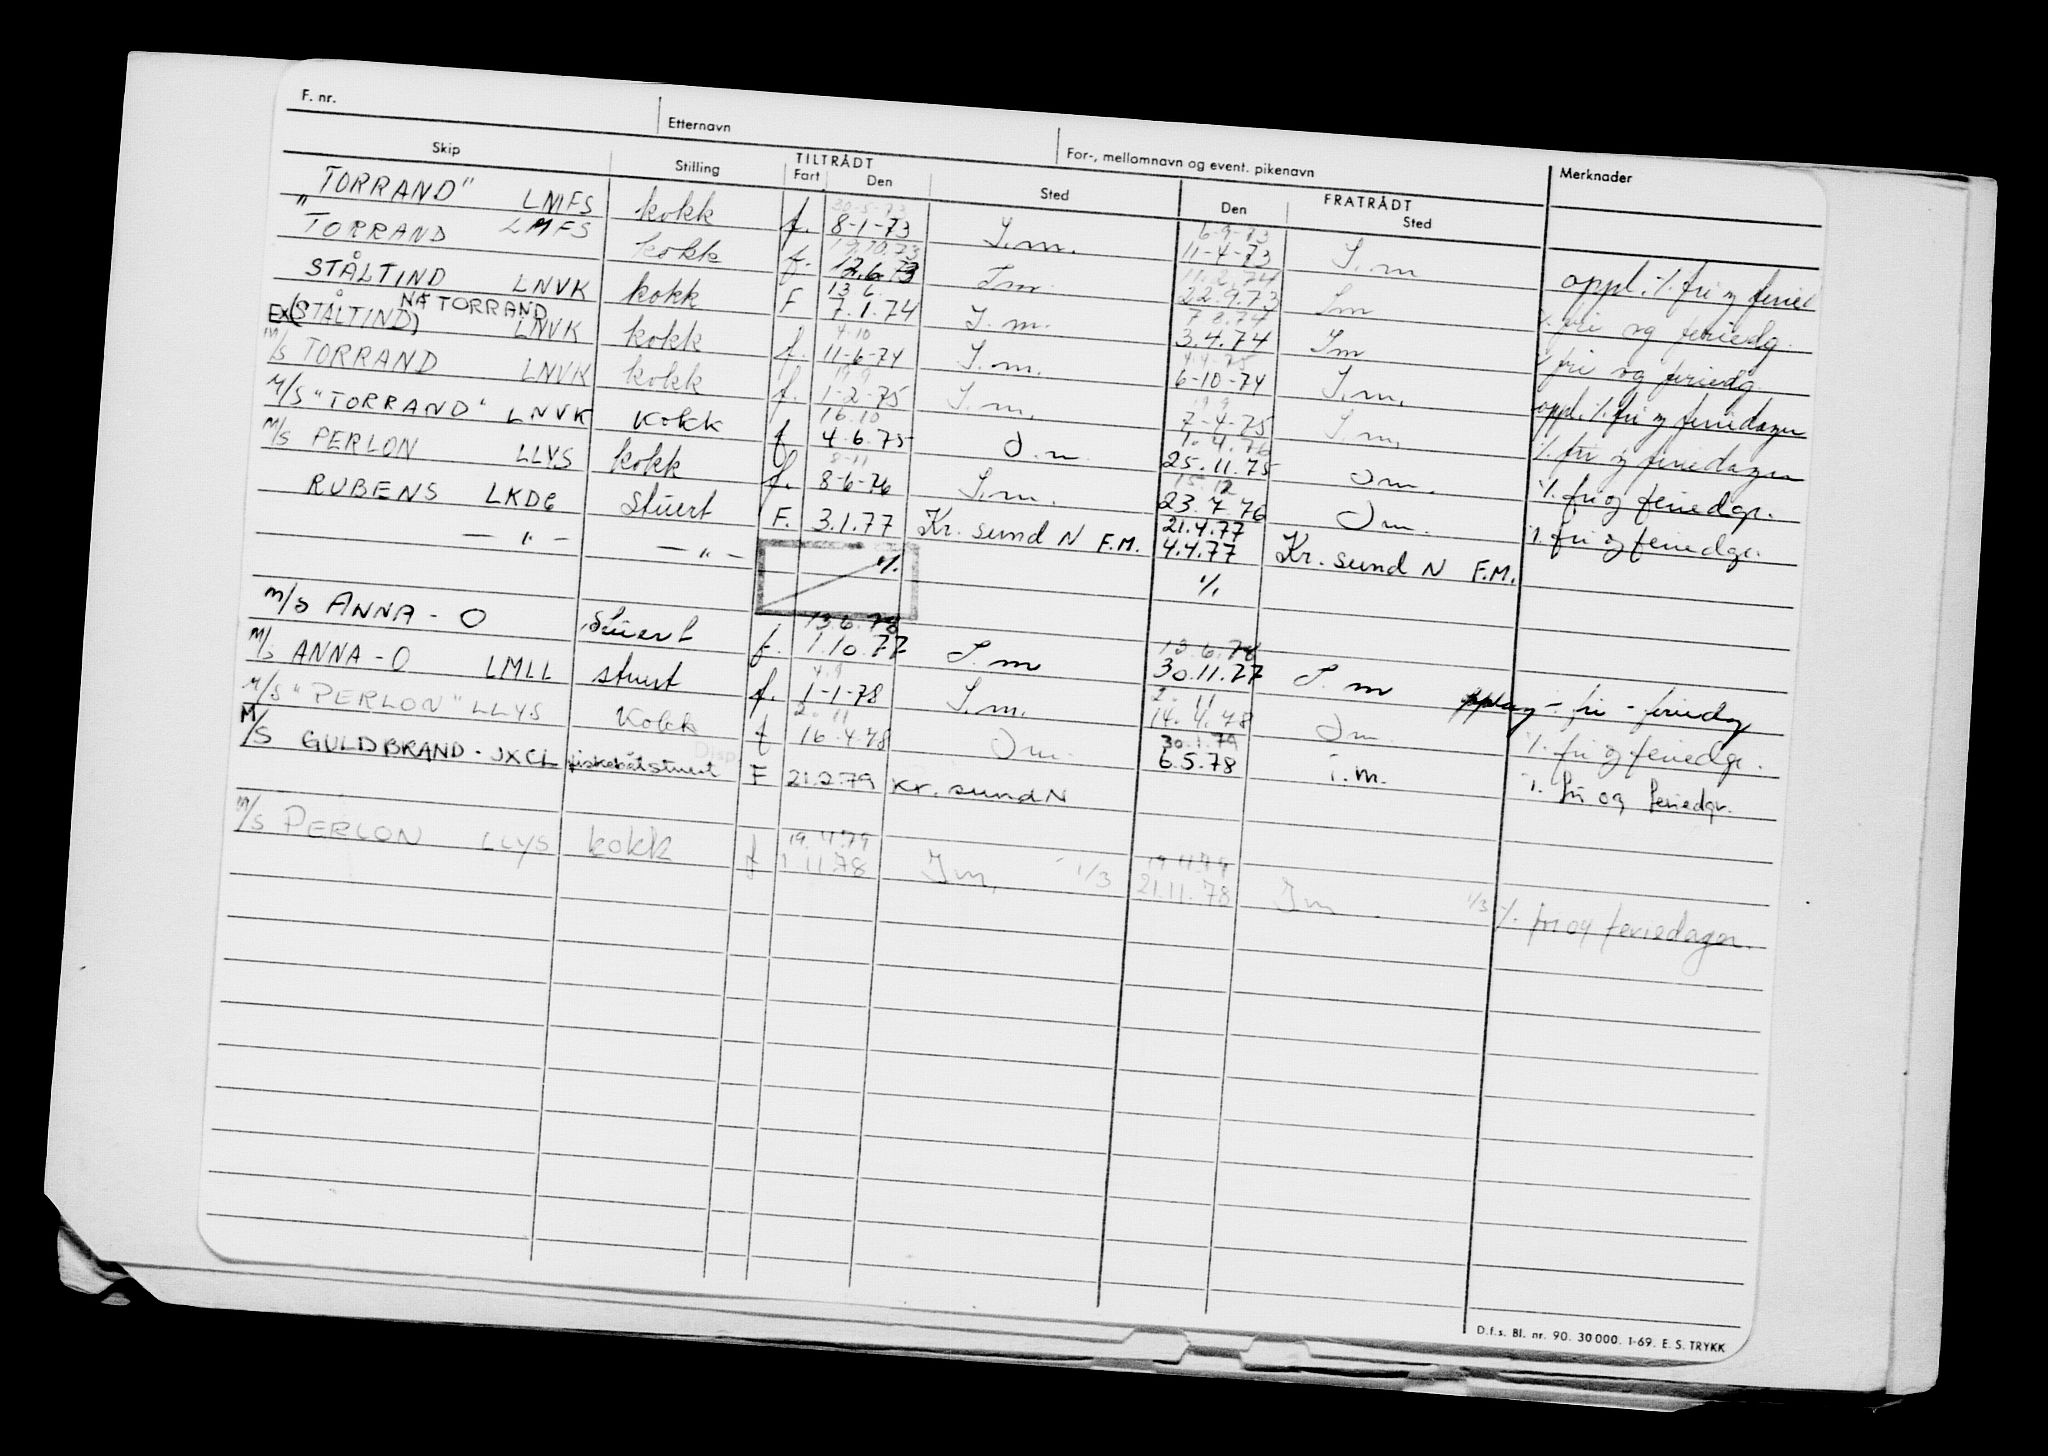 F. nr.
Etternavn
For-, mellomnavn og event. pikenavn
Merknader
Skip
Stilling
TILTRÅDT
Fart
Den
Sted
FRATRÅDT
Den
Sted
30-5-73 6-9-73
"TORRAND" LMFS kokk f. 8-1-73 I.m. 11-4-73 I.m
17.10.73 11.2.74
TORRAND LMFS kokk f. 12.6.73 I.m. 22.9.73 I.m oppl. % fri og feried
13.6 7.8.74
STÅLTIND LNVK kokk F 7.1.74 I.m. 3.4.74 I.m % fri og feriedg.
NÅ TORRAND 4-10 4.4-75
EX (STÅLTIND) LNVK kokk f. 11-6-74 I.m. 6-10-74 I.m. % fri og feriedg.
19.9 19.9
M/S TORRAND LNVK kokk f. 1-2-75 I.m. 7-4-75 I.m. oppl. % fri og feriedager
16.10 1.4.76
M/S "TORRAND" LNVK kokk f 4.6.75 I.m. 25.11.75 I.m. % fri og feriedager
8-11 15.12
M/S PERLON LLYS kokk f. 8-6-76 I.m. 23.7.76 I.m. % fri og feriedgr.
21.4.77
RUBENS LKDG stuert F. 3.1.77 Kr. sund N F.M. 4.4.77 Kr. sund N F.M. % fri og feriedgr.
— " — — " — % %
13.6.78 12.6.78
M/S ANNA - O stuert f. 1.10.77 I.m 30.11.77 I.m
4.9 2.11
M/S ANNA - O LMLL stuert f. 1-1-78 I.m. 14.4.78 I.m. fri - feriedg
2.11 30.1.79
M/S "PERLON" LLYS Kokk f 16.4.78 I.m. 6.5.78 I.m. % fri og feriedgr.
Disp.
M/S GULDBRAND - JXCL fiskebåtstuert F 21.2.79 Kr. sund N % fri og feriedgr.
19.4.79 19.4.79
M/S PERLON LLYS kokk f 1.11.78 I.m. 1/3 21.11.78 I.m 1/3 % fri og feriedager.
D.f.s. Bl. nr. 90. 30 000. 1-69. E. S. TRYKK